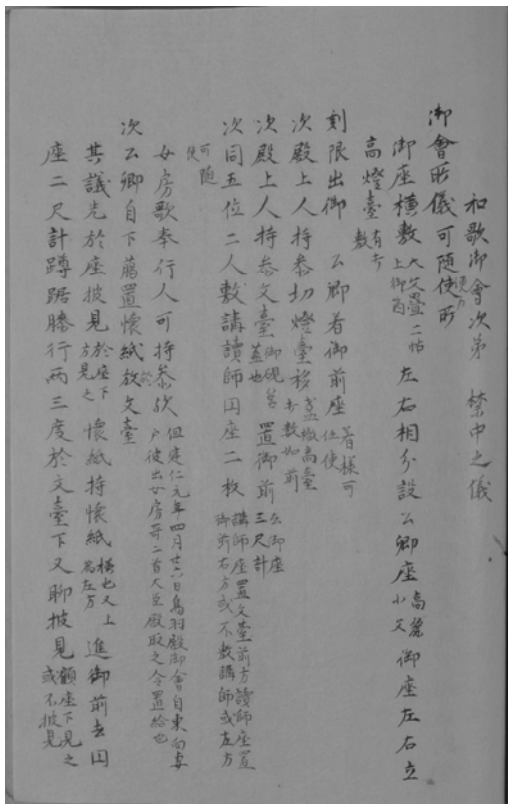 和歌御會次第　禁中之儀
御會所儀可隨使所
御座横敷大文疊二帖左右相分設公卿座高麗小文御座左右立
高燈臺有打敷
刻限出御　公卿着御前座着様可任便
次殿上人持參切燈臺移並撤高臺打敷如前
次殿上人持參文臺御硯筥蓋也置御前去御座三尺計
次同五位二人敷講讀師円座二枚講師座置文臺前方讀師座置御前右方或不敷講師或左方
可隨便
女房歌奉行人可持參欤但建仁元年四月廿六日鳥羽殿御會自東向妻戸被出女房哥二首大臣殿取之令置給也
次公卿自下﨟置懷紙於文臺
其議先於座披見於座下方見之懷紙持懷紙横也文上為左方進御前去円
座二尺計蹲踞膝行兩三度於文臺下又聊披見顧座下見之或不披見